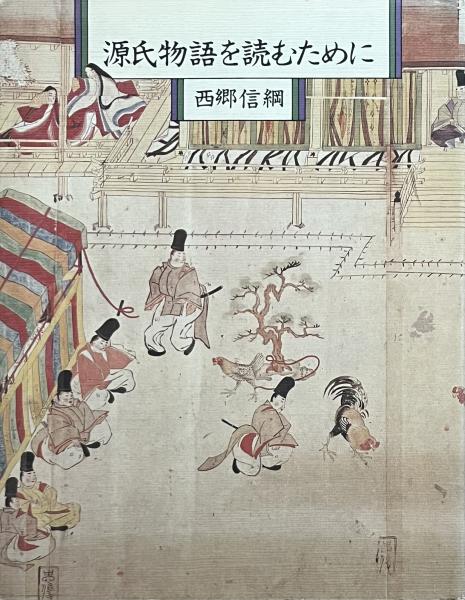 源氏物語を読むために
西郷信綱